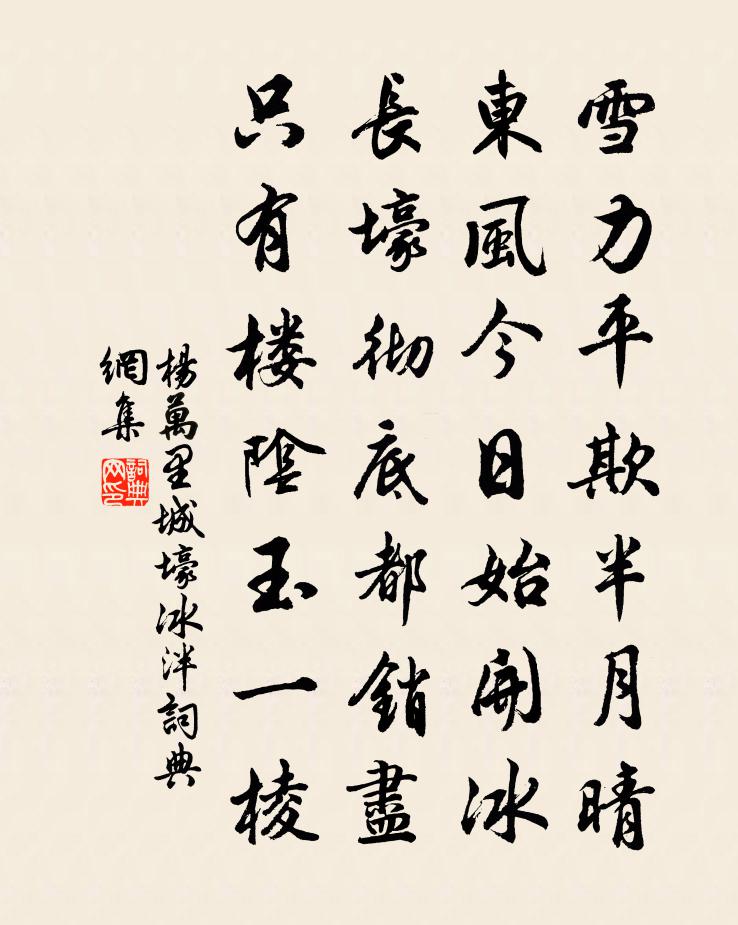 雪力平欺半月晴
東風今日始開冰
長壕彻底都銷盡
只有楼陰玉一棱
楊萬里城壕冰泮詞典
網集
詞典网印